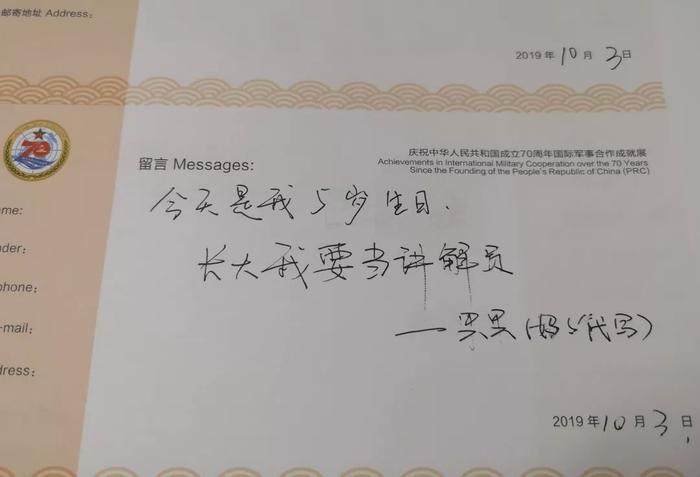 邮寄地址 Address:
2019 年 10 月 3 日
70
庆祝中华人民共和国成立70周年国际军事合作成就展
Achievements in International Military Cooperation over the 70 Years
Since the Founding of the People's Republic of China (PRC)
留言 Messages:
ame:
nder:
phone:
-mail:
dress:
今天是我5岁生日.
长大我要当讲解员
—果果(妈ㄣ代写)
2019 年 10 月 3 日